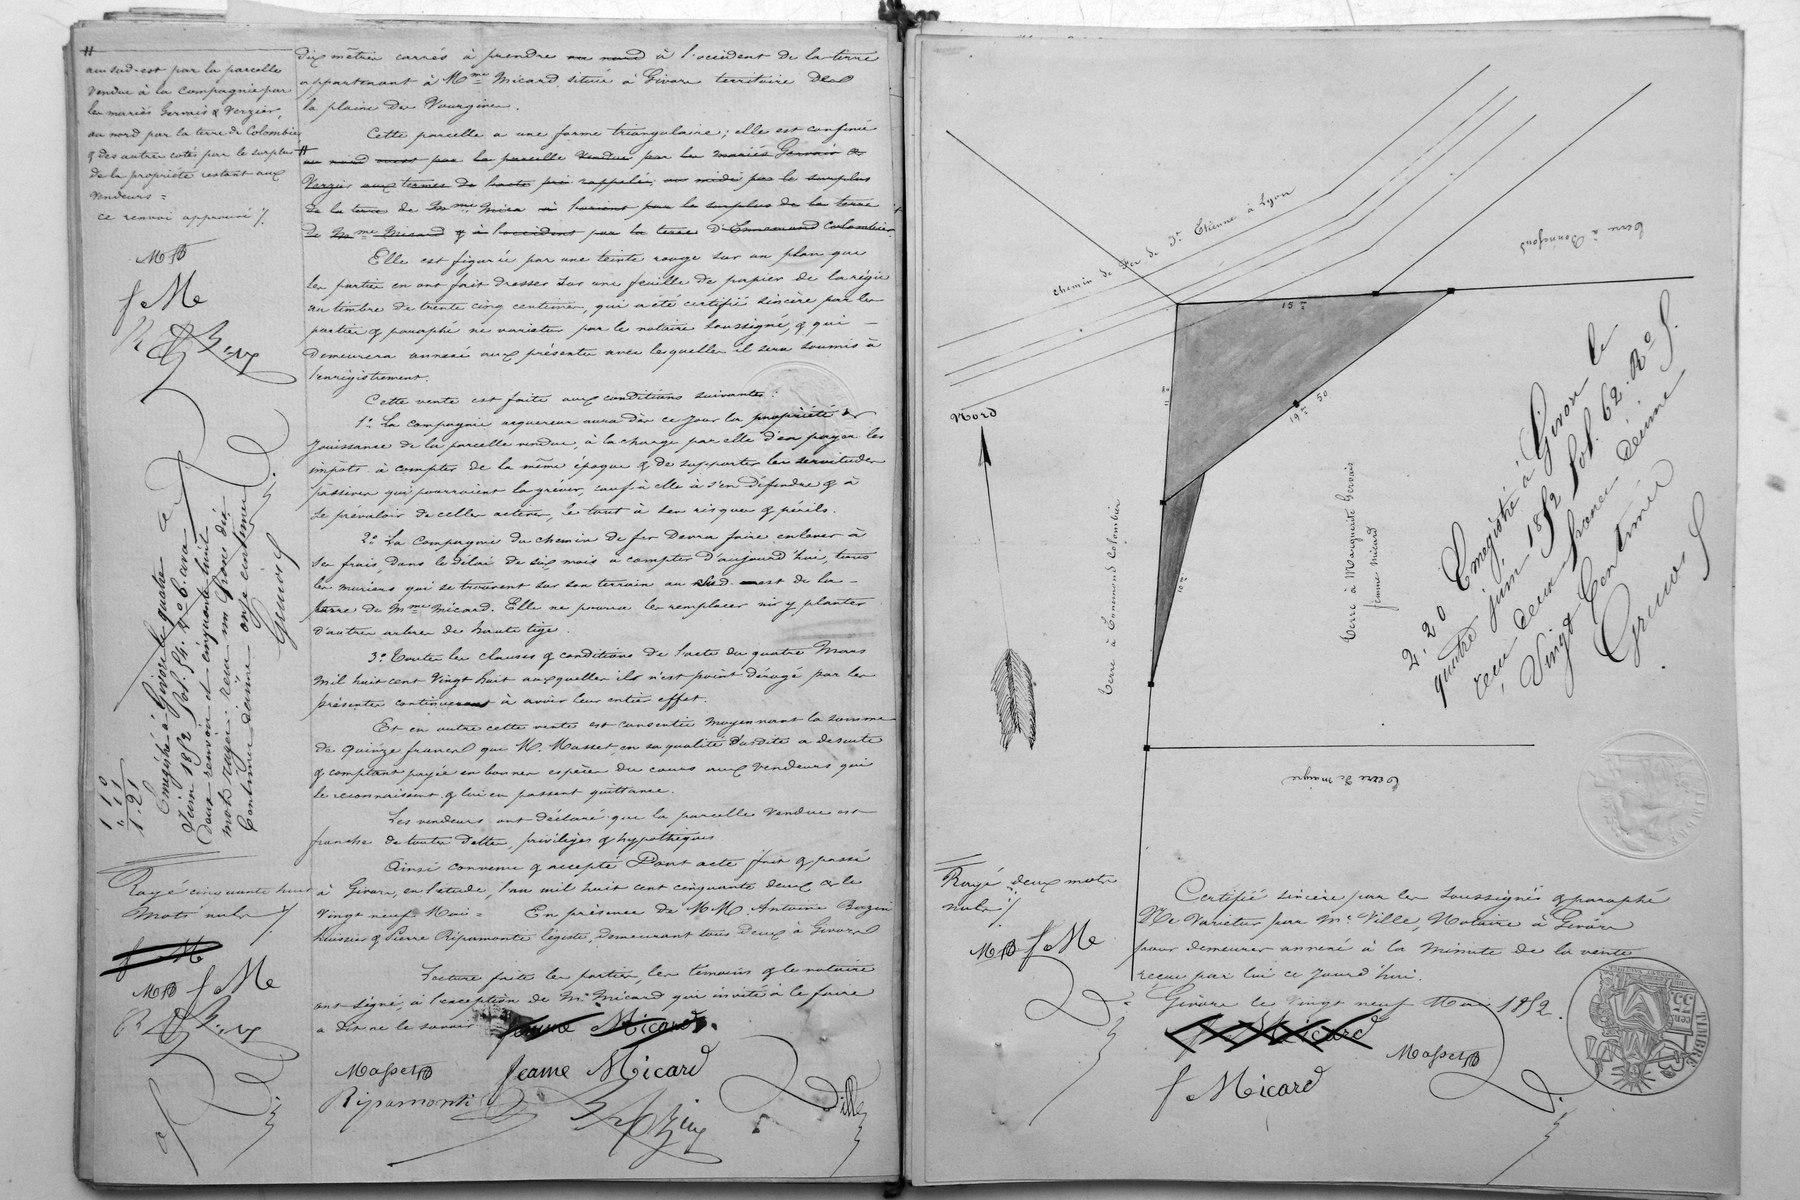 au sud-est par la parcelle
vendue à la Compagnie par
les mariés Gervais & Verzier,
au nord par la terre de Colombier
& des autres cotés par le surplus
de la propriété restant aux
vendeurs =
ce renvoi approuvé /.
MB
f M
Enregistré à Givors le quatre
Juin 1852 fol. 54. Ro 6. case
deux renvois et cinquante huit
mots rayés. reçu un franc dix
centimes décime onze centimes
Gruos
1 10
" 11
1. 21
Rayé cinquante huit
mots nuls /.
f M
MB f M
dix mètres carrés à prendre au nord à l'occident de la terre
appartenant à Mme Micard située à Givors territoire de
la plaine de Vourgines.
Cette parcelle a une forme triangulaire; elle est confinée
au nord ouest par la parcelle vendue par les mariés Gervais &
Verzier aux termes de l'acte pré rappelé, au midi par le surplus
de la terre de Mme Mica à l'orient par le surplus de la terre
de Mme Micard & à l'occident par la terre d'Ennemond Colombier.
Elle est figurée par une teinte rouge sur un plan que
les parties en ont fait dresser sur une feuille de papier de la régie
au timbre de trente cinq centimes, qui a été certifié sincère par les
parties & paraphé ne varietur par le notaire soussigné, & qui
demeurera annexé aux présentes avec lesquelles il sera soumis à
l'enregistrement.
Cette vente est faite aux conditions suivantes:
1° La compagnie acquereur aura dès ce jour la propriété &
jouissance de la parcelle vendue, à la charge par elle d'en payer les
impôts à compter de la même époque & de supporter les servitudes
passives qui pourraient la gréver, sauf à elle à s'en défendre & à
se prévaloir de celles actives, le tout à ses risques & périls.
2° La Compagnie du chemin de fer devra faire enlever à
ses frais, dans le délai de six mois à compter d'aujourd'hui, tous
les muriers qui se trouvent sur son terrain au sud est de la
terre de Mme Micard. Elle ne pourra les remplacer ni y planter
d'autres arbres de haute tige.
3° Toutes les clauses & conditions de l'acte du quatre Mars
mil huit cent vingt huit auxquelles il n'est point dérogé par les
présentes continueront à avoir leur entier effet.
Et en outre cette vente est consentie moyennant la somme
de quinze francs que M. Masset en sa qualité susdite a desuite
& comptant payée en bonnes espèces du cours aux vendeurs qui
le reconnaissent & lui en passent quittance.
Les vendeurs ont déclaré que la parcelle vendue est
franche de toutes dettes, privilèges & hypothèques
Ainsi convenu & accepté Dont acte fait & passé
à Givors, en l'étude, l'an mil huit cent cinquante deux & le
vingt neuf Mai = En présence de MM. Antoine Bazin
huissier & Pierre Ripamonti légiste, demeurant tous deux à Givors
Lecture faite les parties, les témoins & le notaire
ont signé, à l'exception de Me Micard qui invité à le faire
a dit ne le savoir
Jeanne Micard
Masset
Jeanne Micard
Ripamonti
Bazin
Ville
Chemin de Fer de St. Etienne à Lyon
Terre à Bonnefond
15 m
Nord
19 m 50
10 m
Terre à Ennemond Colombier
Terre à Marguerite Gervais
femme Micard
Terre de maigre
2. 20 Enregistré à Givors le
quatre juin 1852 fol. 62. Ro 5.
reçu deux francs décime
Vingt Centimes
Gruos
Rayé deux mots
nuls /.
MB f M
Certifié sincère par les soussignés & paraphé
Ne Varietur par Me Ville, Notaire à Givors
pour demeurer annexé à la minute de la vente
reçue par lui ce jourd'hui.
Givors le vingt neuf Mai 1852.
f Micard
Masset
f Micard
TIMBRE
35 cent